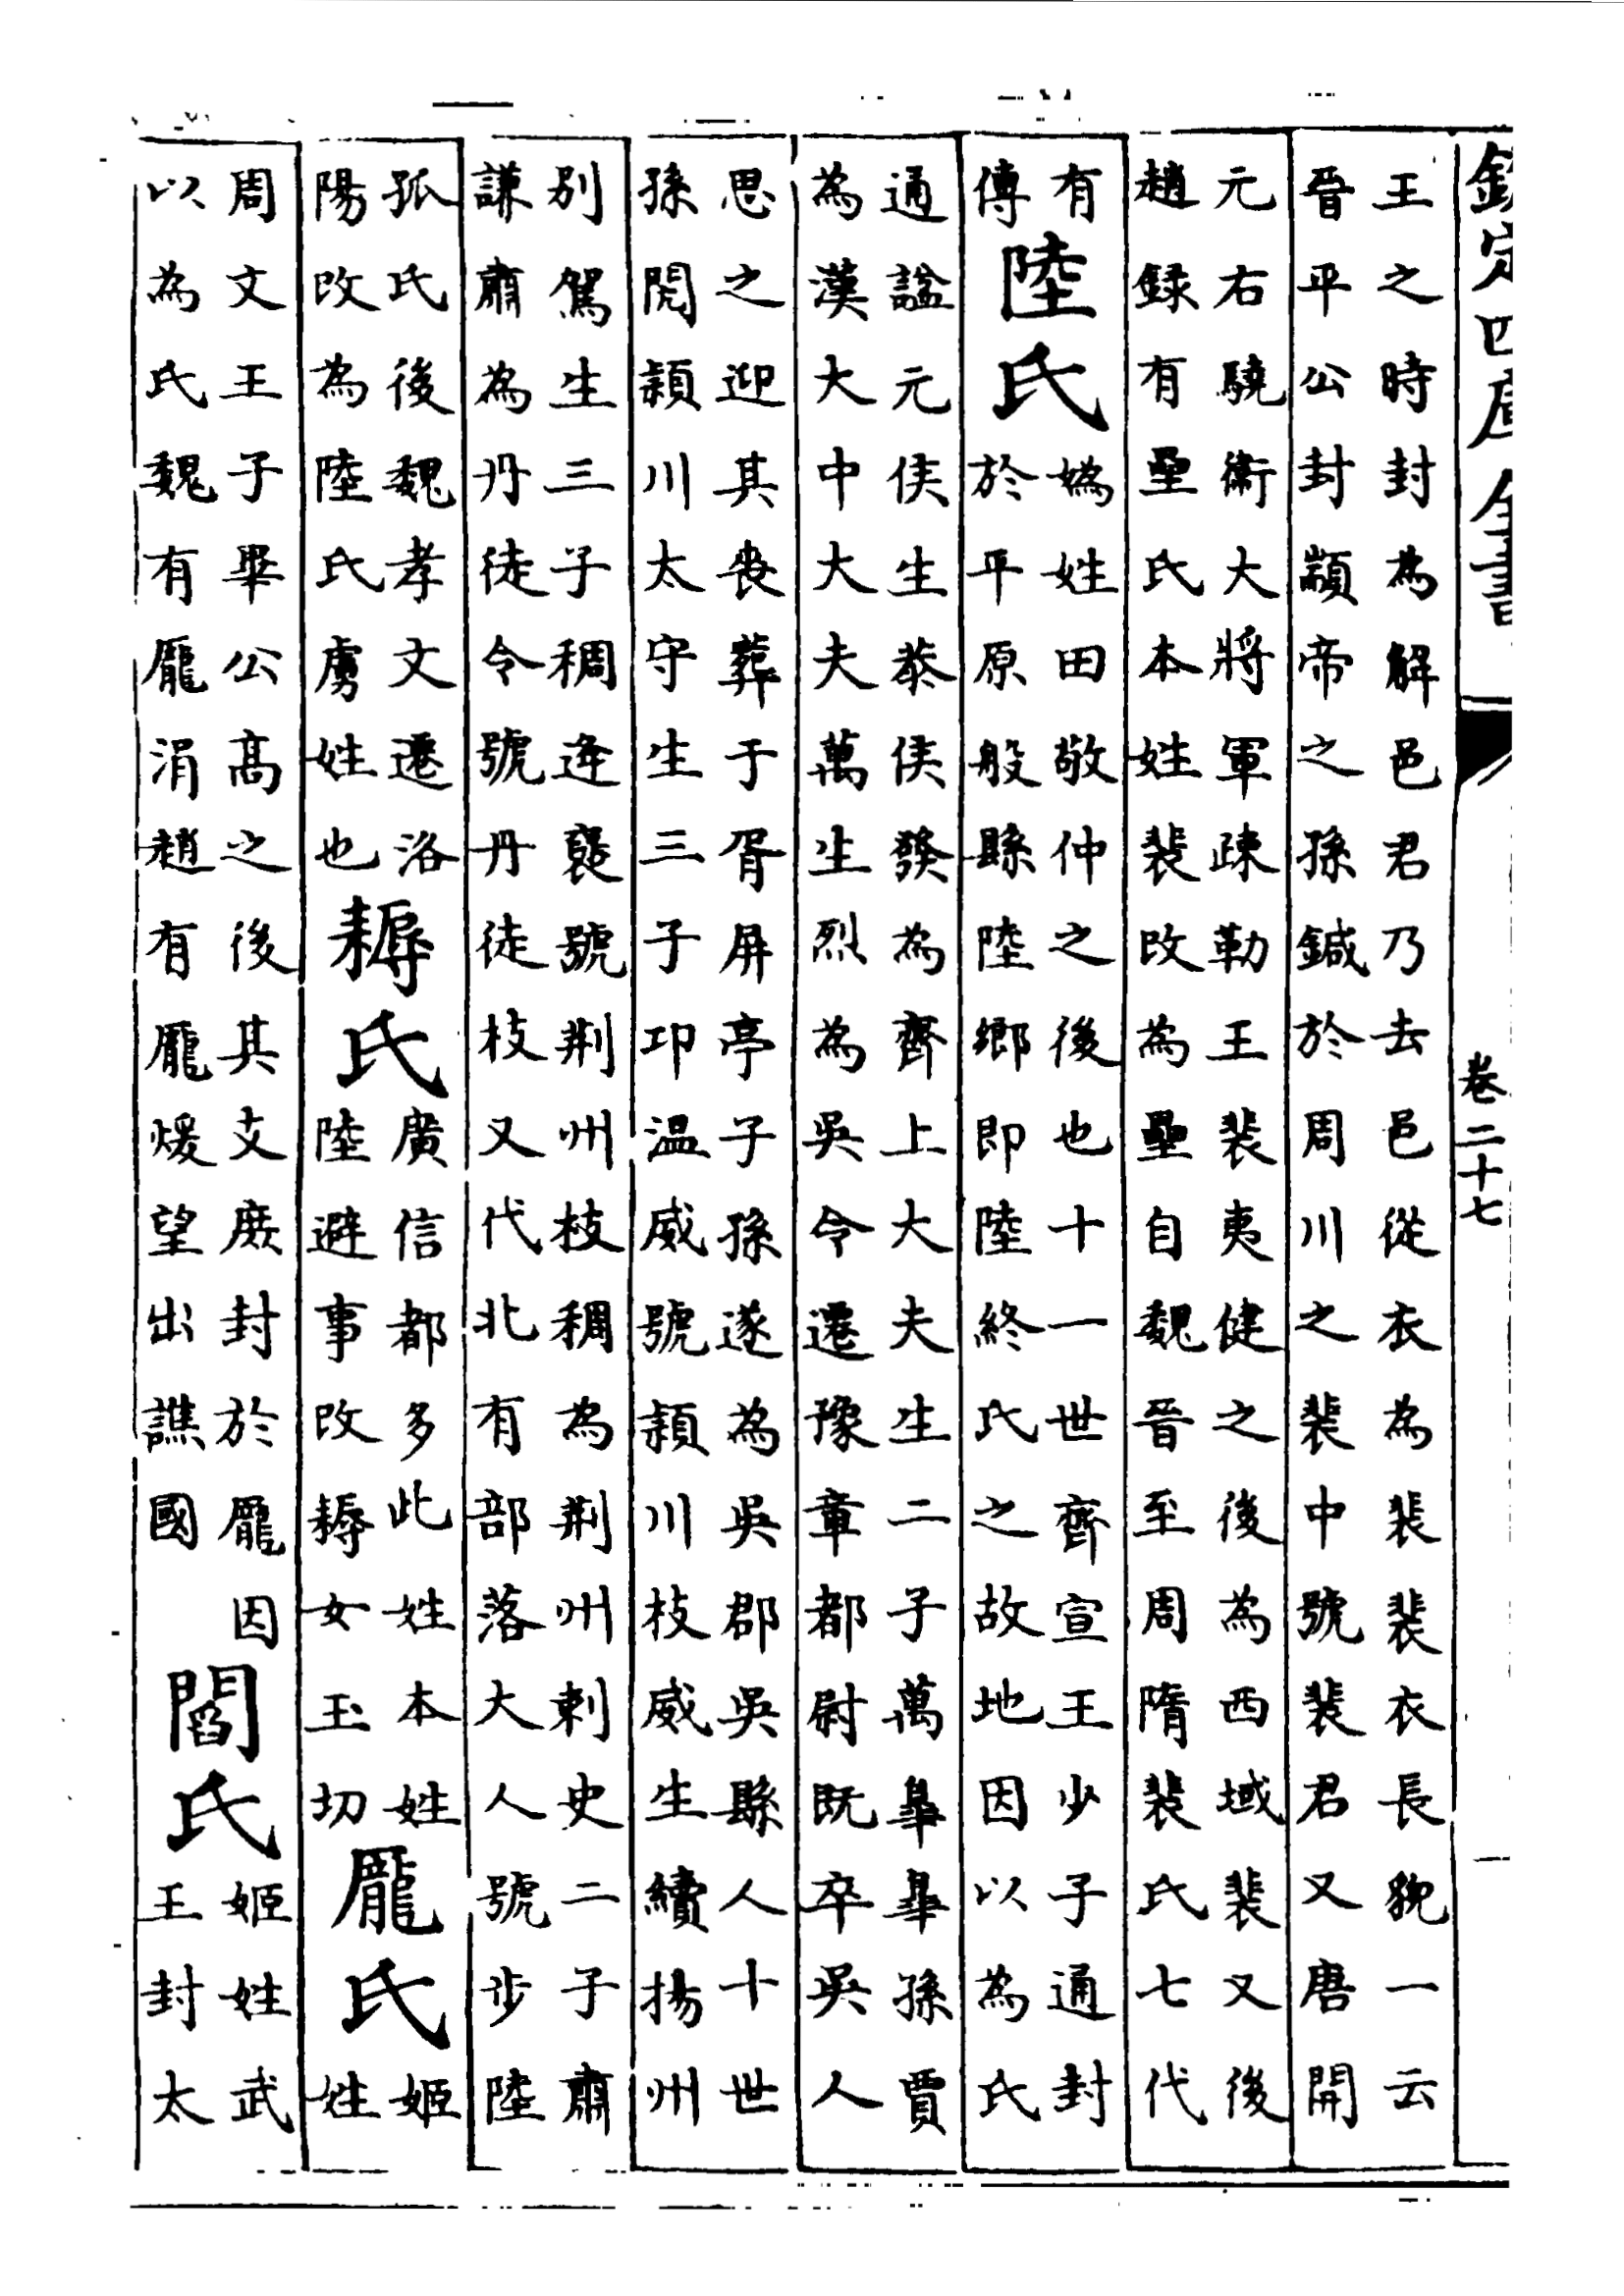 欽定四庫全書
卷二十七
一
王之時封為解邑君乃去邑從衣為裴裴衣長貌一云
晉平公封顓帝之孫鍼於周川之裴中號裴君又唐開
元右驍衛大將軍疎勒王裴夷健之後為西域裴又後
趙録有壘氏本姓裴改為壘自魏晉至周隋裴氏七代
有
傳
陸氏
媯姓田敬仲之後也十一世齊宣王少子通封
於平原般縣陸鄉即陸終氏之故地因以為氏
通諡元侯生恭侯發為齊上大夫生二子萬臯臯孫賈
為漢大中大夫萬生烈為吳令遷豫章都尉既卒吳人
思之迎其喪葬于胥屏亭子孫遂為吳郡吳縣人十世
孫閎潁川太守生三子卭温威號潁川枝威生續揚州
别駕生三子稠逄襃號荆州枝稠為荆州刺史二子肅
謙肅為丹徒令號丹徒枝又代北有部落大人號步陸
孤氏後魏孝文遷洛
陽改為陸氏虜姓也
耨氏
廣信都多此姓本姓
陸避事改耨女玉切
龎氏
姬
姓
周文王子畢公高之後其支庶封於龎因
以為氏魏有龎涓趙有龎煖望出譙國
閻氏
姬姓武
王封太